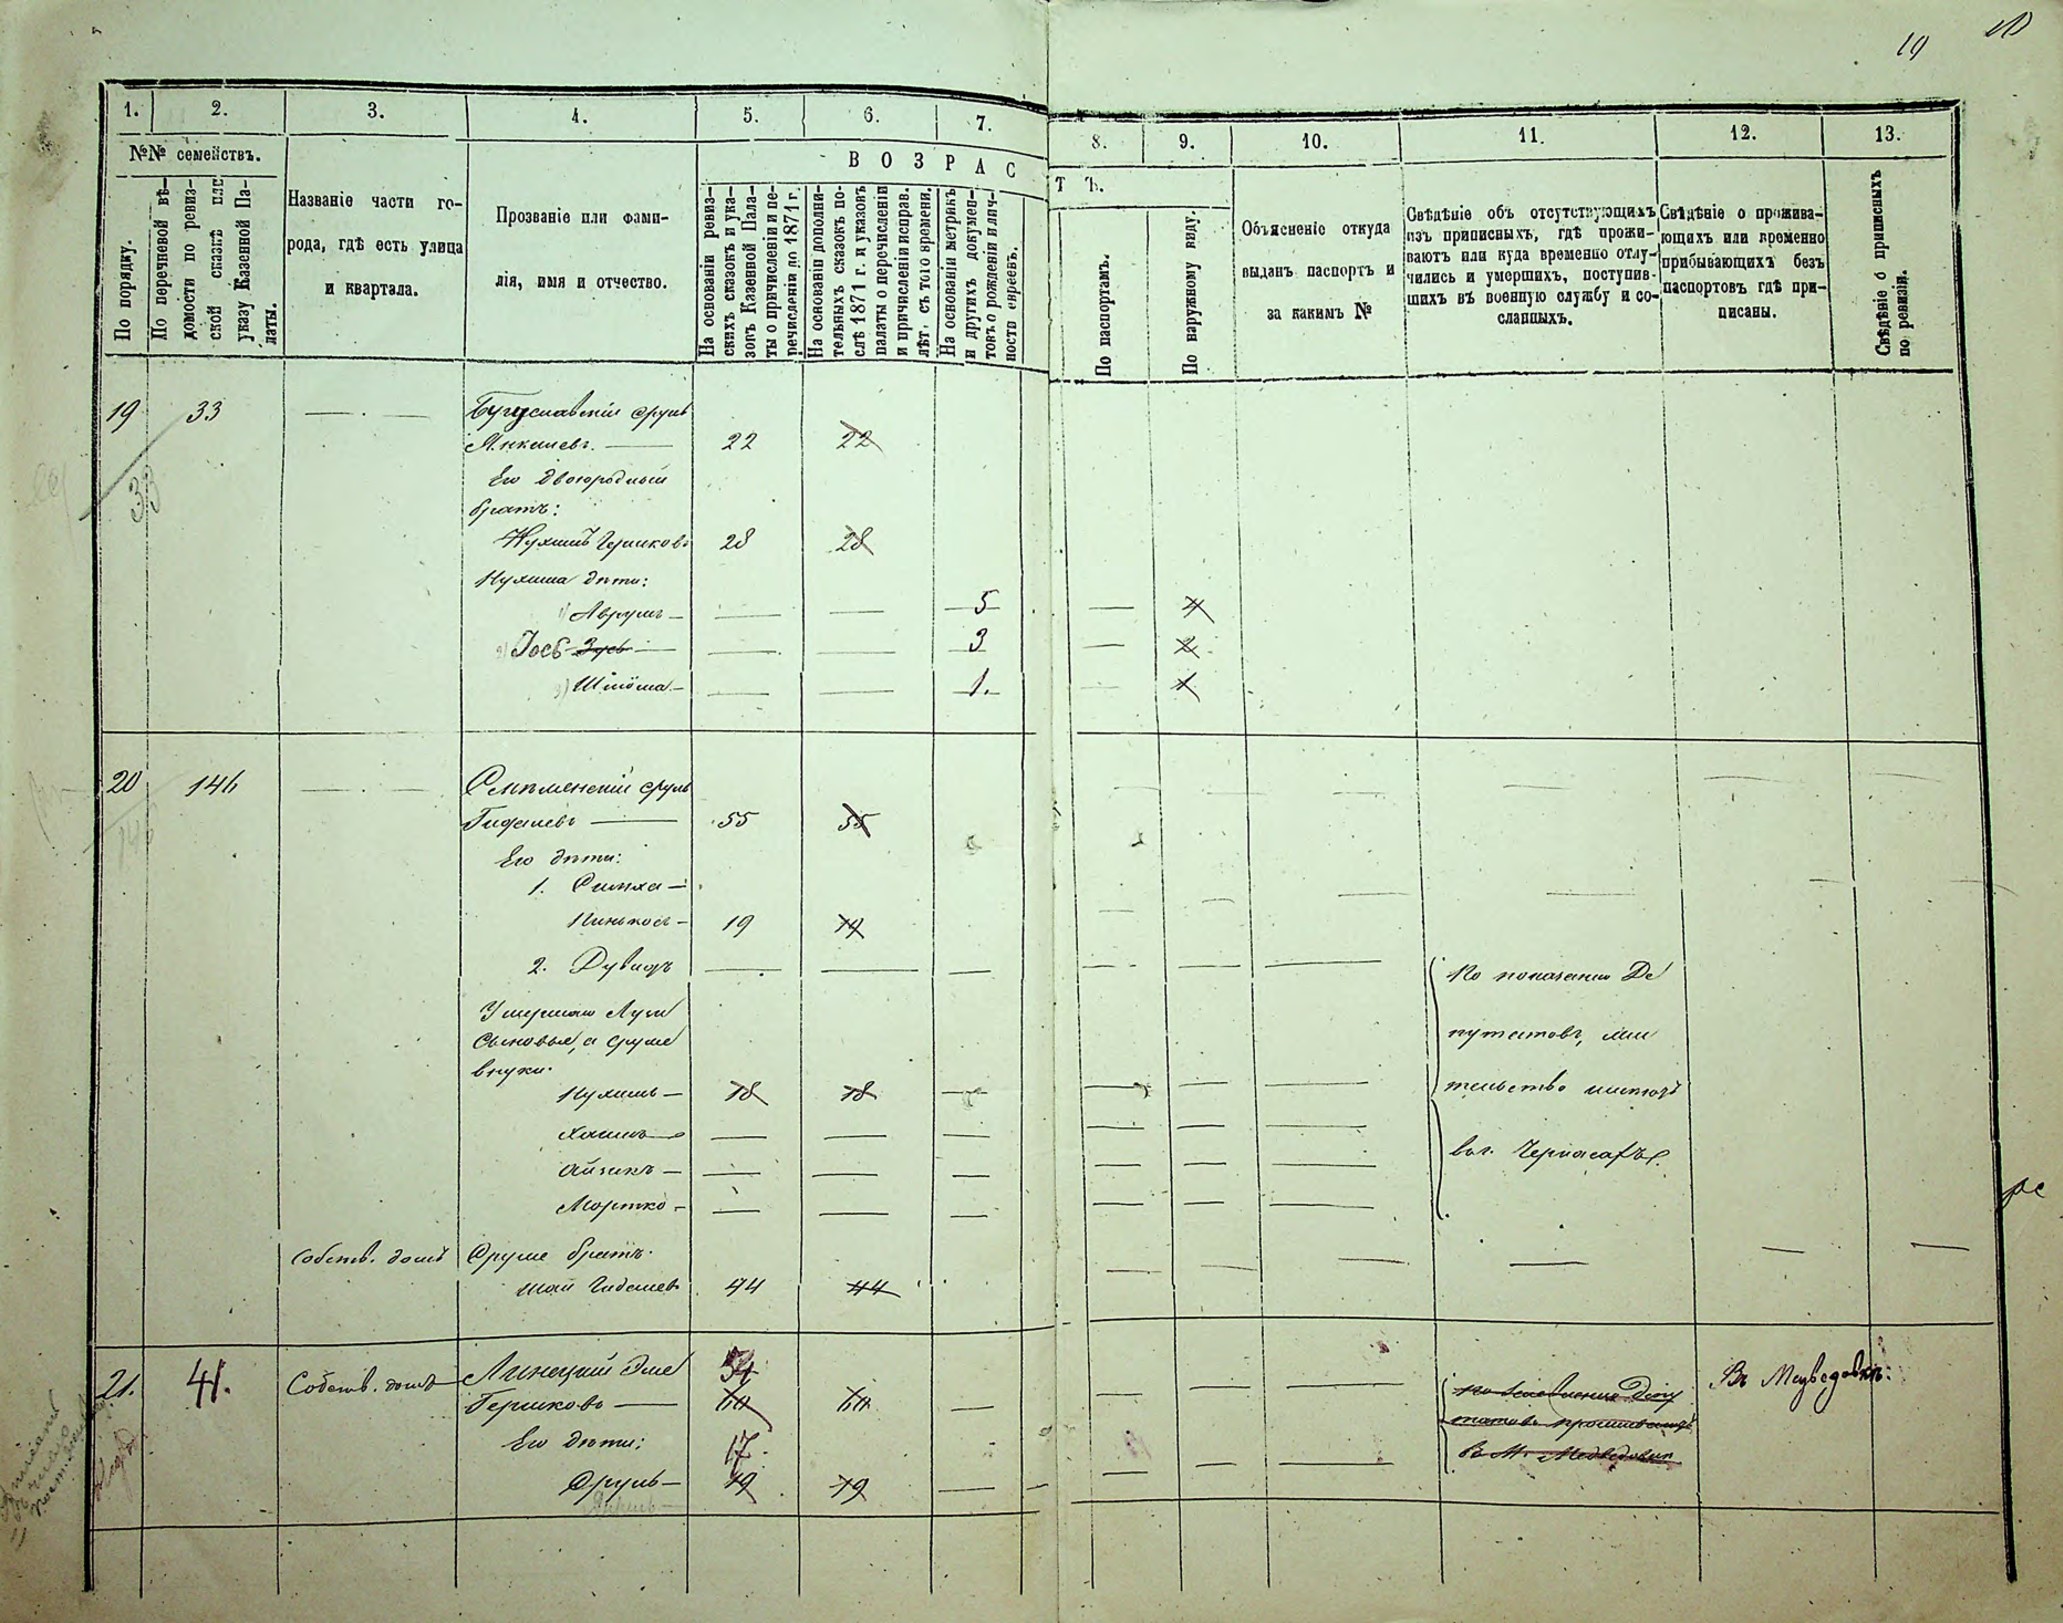 19
1. 2. 3. 4. 5. 6. 7. 8. 9. 10. 11. 12. 13.
№№ семействъ.
По порядку.
По перечневой вѣ-
домости по ревиз-
ской сказкѣ или
указу Казенной Па-
латы.
Названіе части го-
рода, гдѣ есть улица
и квартала.
Прозваніе или фами-
лія, имя и отчество.
ВОЗРАСТЪ.
На основаніи ревиз-
скихъ сказокъ и ука-
зовъ Казенной Пала-
ты о причисленіи и пе-
речисленіи до 1871 г.
На основаніи дополни-
тельныхъ сказокъ по-
слѣ 1871 г. и указовъ
палаты о перечисленіи
и причисленіи исправ.
лѣт. съ того времени.
На основаніи метрикъ
и другихъ докумен-
товъ о рожденіи и лич-
ности евреевъ.
По паспортамъ.
По наружному виду.
Объясненіе откуда
выданъ паспортъ и
за какимъ №
Свѣдѣніе объ отсутствующихъ
изъ приписныхъ, гдѣ прожи-
ваютъ или куда временно отлу-
чились и умершихъ, поступив-
шихъ въ военную службу и со-
сланныхъ.
Свѣдѣніе о прожива-
ющихъ или временно
прибывающихъ безъ
паспортовъ гдѣ при-
писаны.
Свѣдѣніе о приписныхъ
по ревизіи.
19 33 Бугуславскій Сруль
33
Янкелевъ 22 22
Его двоюродный
братъ:
Нухимъ Гершковъ 28 28
Нухима дѣти:
1) Аврумъ 5 4
2) Іось Зусь 3 2
3) Шлёма 1. 1
20 146 Смѣлянскій Сруль
146
Гидалевъ 55 55
Его дѣти:
1. Симха
Пинькось 19 19
2. Дувидъ
Умершаго Лузи
сыновья, а Сруля
внуки.
Нухимъ 18 18
Хаимъ
Айзикъ
Мортко
По показанію Де
путатовъ, жи
тельство имѣютъ
въ г. Черкасахъ.
Собств. домъ Сруля братъ.
Шая Гидалевъ 44 44
21. 41. Собств. домъ Линецкій Эле 54
Гершковъ 60 60
Его дѣти: 17
Сруль 19 19
въ М. Медведовки
Въ Медведовкѣ.